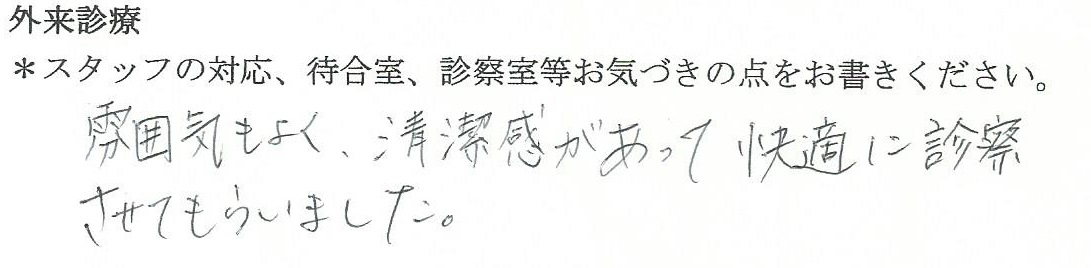 外来診療
＊スタッフの対応、待合室、診察室等お気づきの点をお書きください。
雰囲気もよく、清潔感があって快適に診察
させてもらいました。